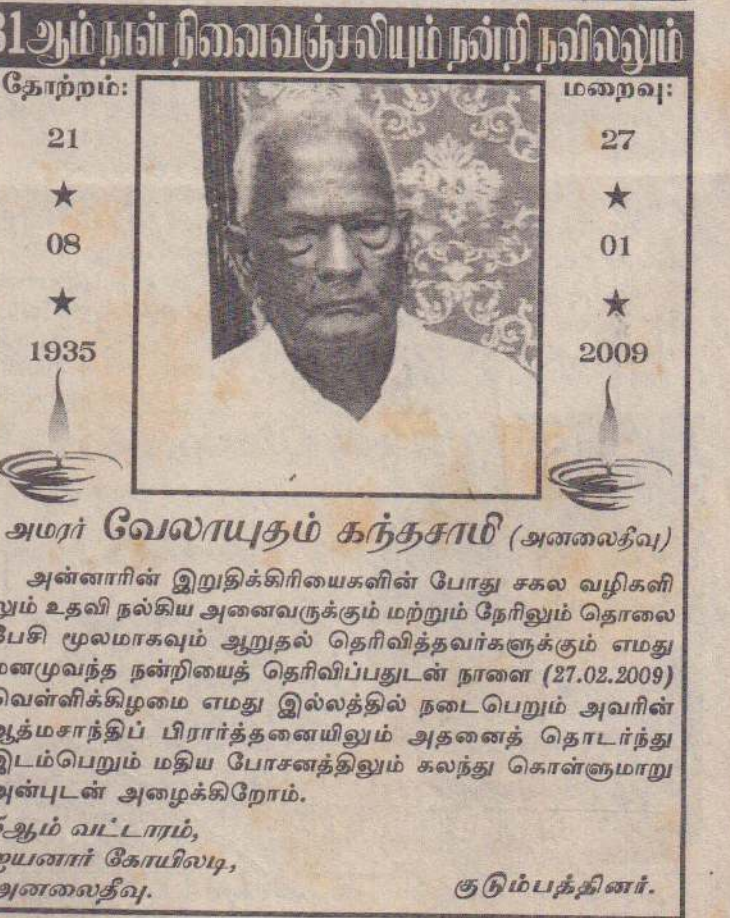 31ஆம் நாள் நினைவஞ்சலியும் நன்றி நவிலலும்
தோற்றம்:
21
★
08
★
1935
மறைவு:
27
★
01
★
2009
அமரர் வேலாயுதம் கந்தசாமி (அனலைதீவு)
அன்னாரின் இறுதிக்கிரியைகளின் போது சகல வழிகளி
லும் உதவி நல்கிய அனைவருக்கும் மற்றும் நேரிலும் தொலை
பேசி மூலமாகவும் ஆறுதல் தெரிவித்தவர்களுக்கும் எமது
மனமுவந்த நன்றியைத் தெரிவிப்பதுடன் நாளை (27.02.2009)
வெள்ளிக்கிழமை எமது இல்லத்தில் நடைபெறும் அவரின்
ஆத்மசாந்திப் பிரார்த்தனையிலும் அதனைத் தொடர்ந்து
இடம்பெறும் மதிய போசனத்திலும் கலந்து கொள்ளுமாறு
அன்புடன் அழைக்கிறோம்.
வட்டாரம்,
ஐயனார் கோயிலடி,
அனலைதீவு.
குடும்பத்தினர்.